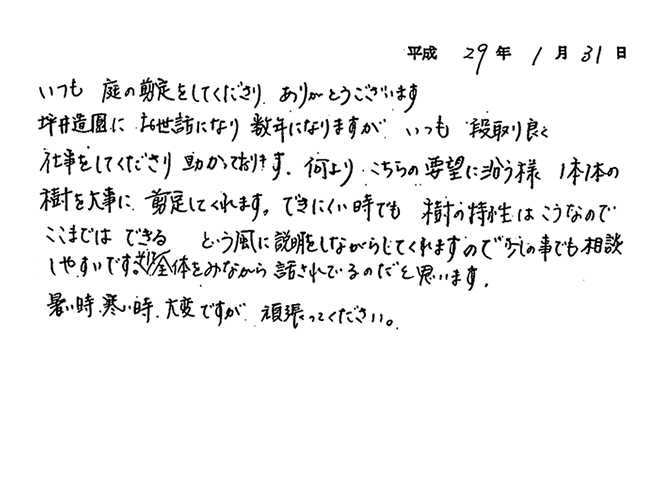 平成 29 年 1 月 31 日
いつも 庭の剪定をしてくださり ありがとうございます
坪井造園に お世話になり 数年になりますが いつも 段取り良く
仕事をしてくださり 助かっております。何より こちらの要望に沿う様 1本1本の
樹を大事に 剪定してくれます。できにくい時でも 樹の特性はこうなので
ここまでは できる という風に説明をしながらしてくれますので少しの事でも相談
しやすいです。全体をみながら 話されているのだと思います。
暑い時 寒い時 大変ですが 頑張ってください。